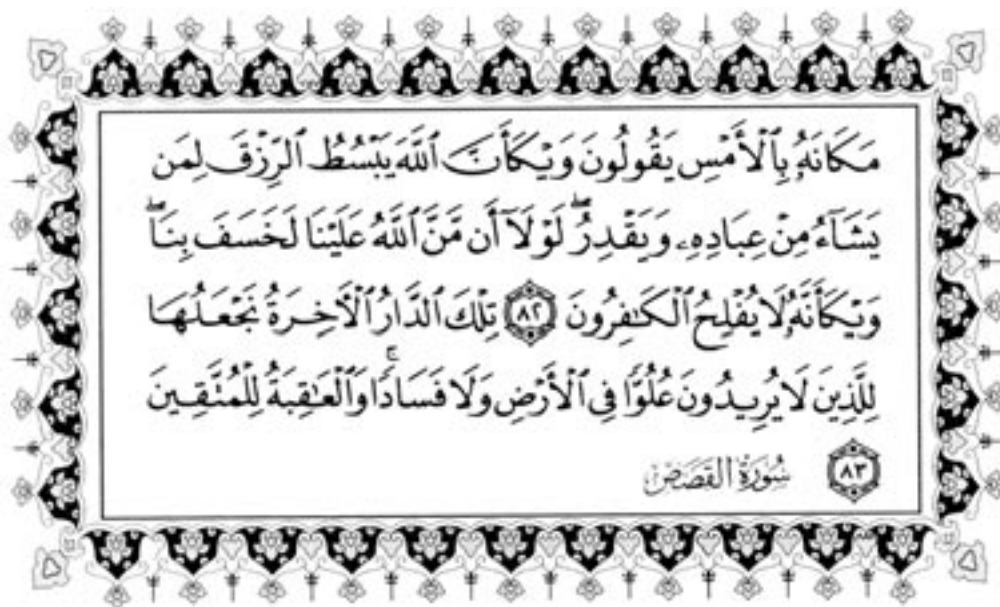 مَكَانَهُۥ بِٱلْأَمْسِ يَقُولُونَ وَيْكَأَنَّ ٱللَّهَ يَبْسُطُ ٱلرِّزْقَ لِمَن
يَشَآءُ مِنْ عِبَادِهِۦ وَيَقْدِرُ ۖ لَوْلَآ أَن مَّنَّ ٱللَّهُ عَلَيْنَا لَخَسَفَ بِنَا ۖ
وَيْكَأَنَّهُۥ لَا يُفْلِحُ ٱلْكَـٰفِرُونَ ٨٢ تِلْكَ ٱلدَّارُ ٱلْأَخِرَةُ نَجْعَلُهَا
لِلَّذِينَ لَا يُرِيدُونَ عُلُوًّا فِى ٱلْأَرْضِ وَلَا فَسَادًا ۚ وَٱلْعَـٰقِبَةُ لِلْمُتَّقِينَ
٨٣ سُورَةُ القَصَصْ